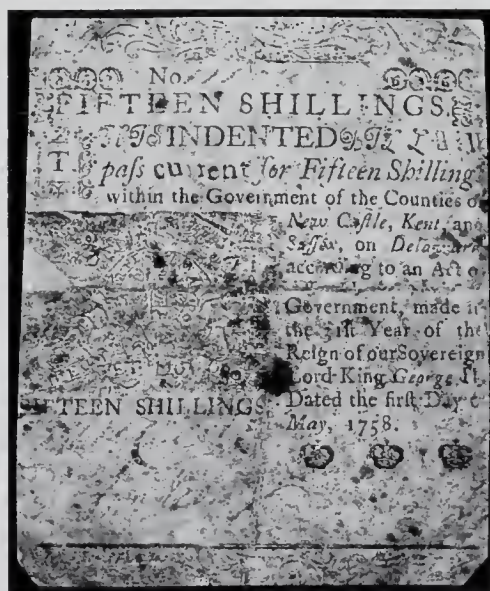 No.
FIFTEEN SHILLINGS.
THIS INDENTED BILL
T
paſs current for Fifteen Shilling
within the Government of the Counties o
New Caſtle, Kent, and
Suſſex, on Delaware
according to an Act o
Government, made in
the 31ſt Year of the
Reign of our Sovereign
Lord King George II.
Dated the firſt Day
May, 1758.
FIFTEEN SHILLINGS.